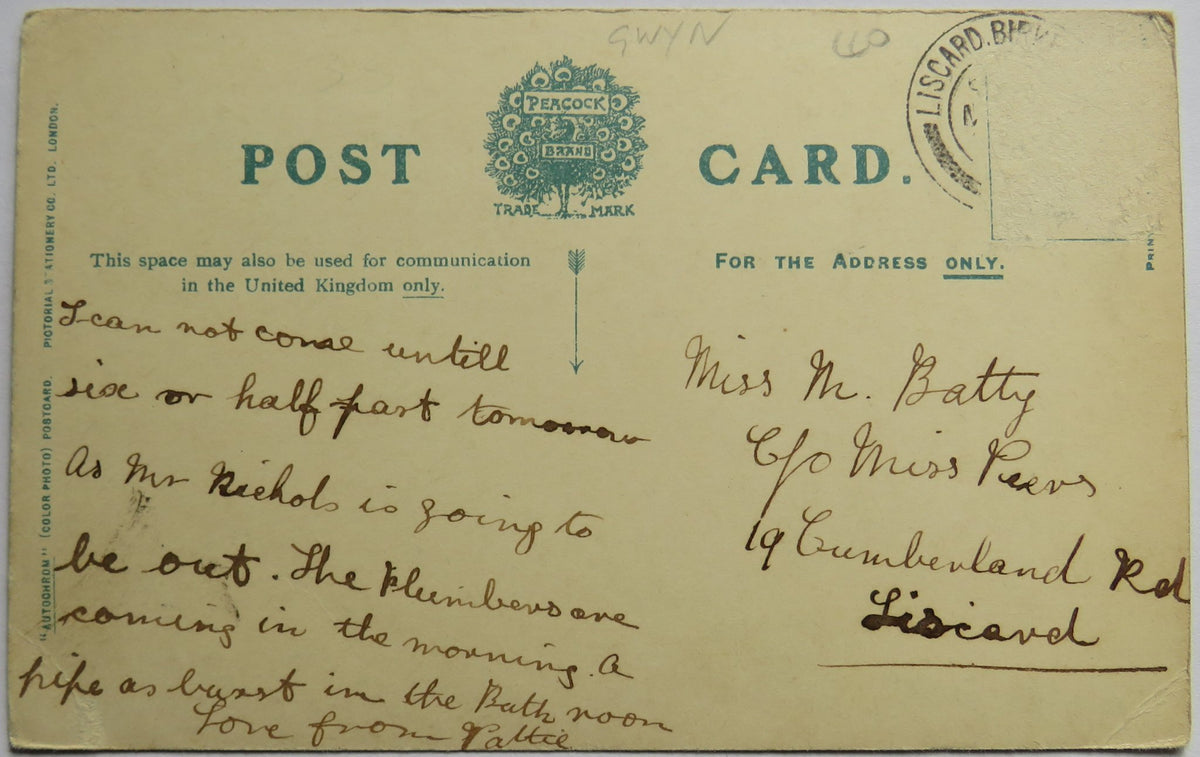 GWYN
LISCARD. BIRK
PEACOCK
BRAND
POST CARD.
TRADE MARK
This space may also be used for communication
in the United Kingdom only.
FOR THE ADDRESS ONLY.
"AUTOCHROM" (COLOR PHOTO) POSTCARD. PICTORIAL STATIONERY CO. LTD. LONDON.
PRIN
I can not come untill
six or half past tomorrow
As Mr Nichols is going to
be out. The Plumbers are
coming in the morning. A
pipe as burst in the Bath room
Love from Pattie
Miss M. Batty
C/o Miss Peers
19 Cumberland Rd
Liscard